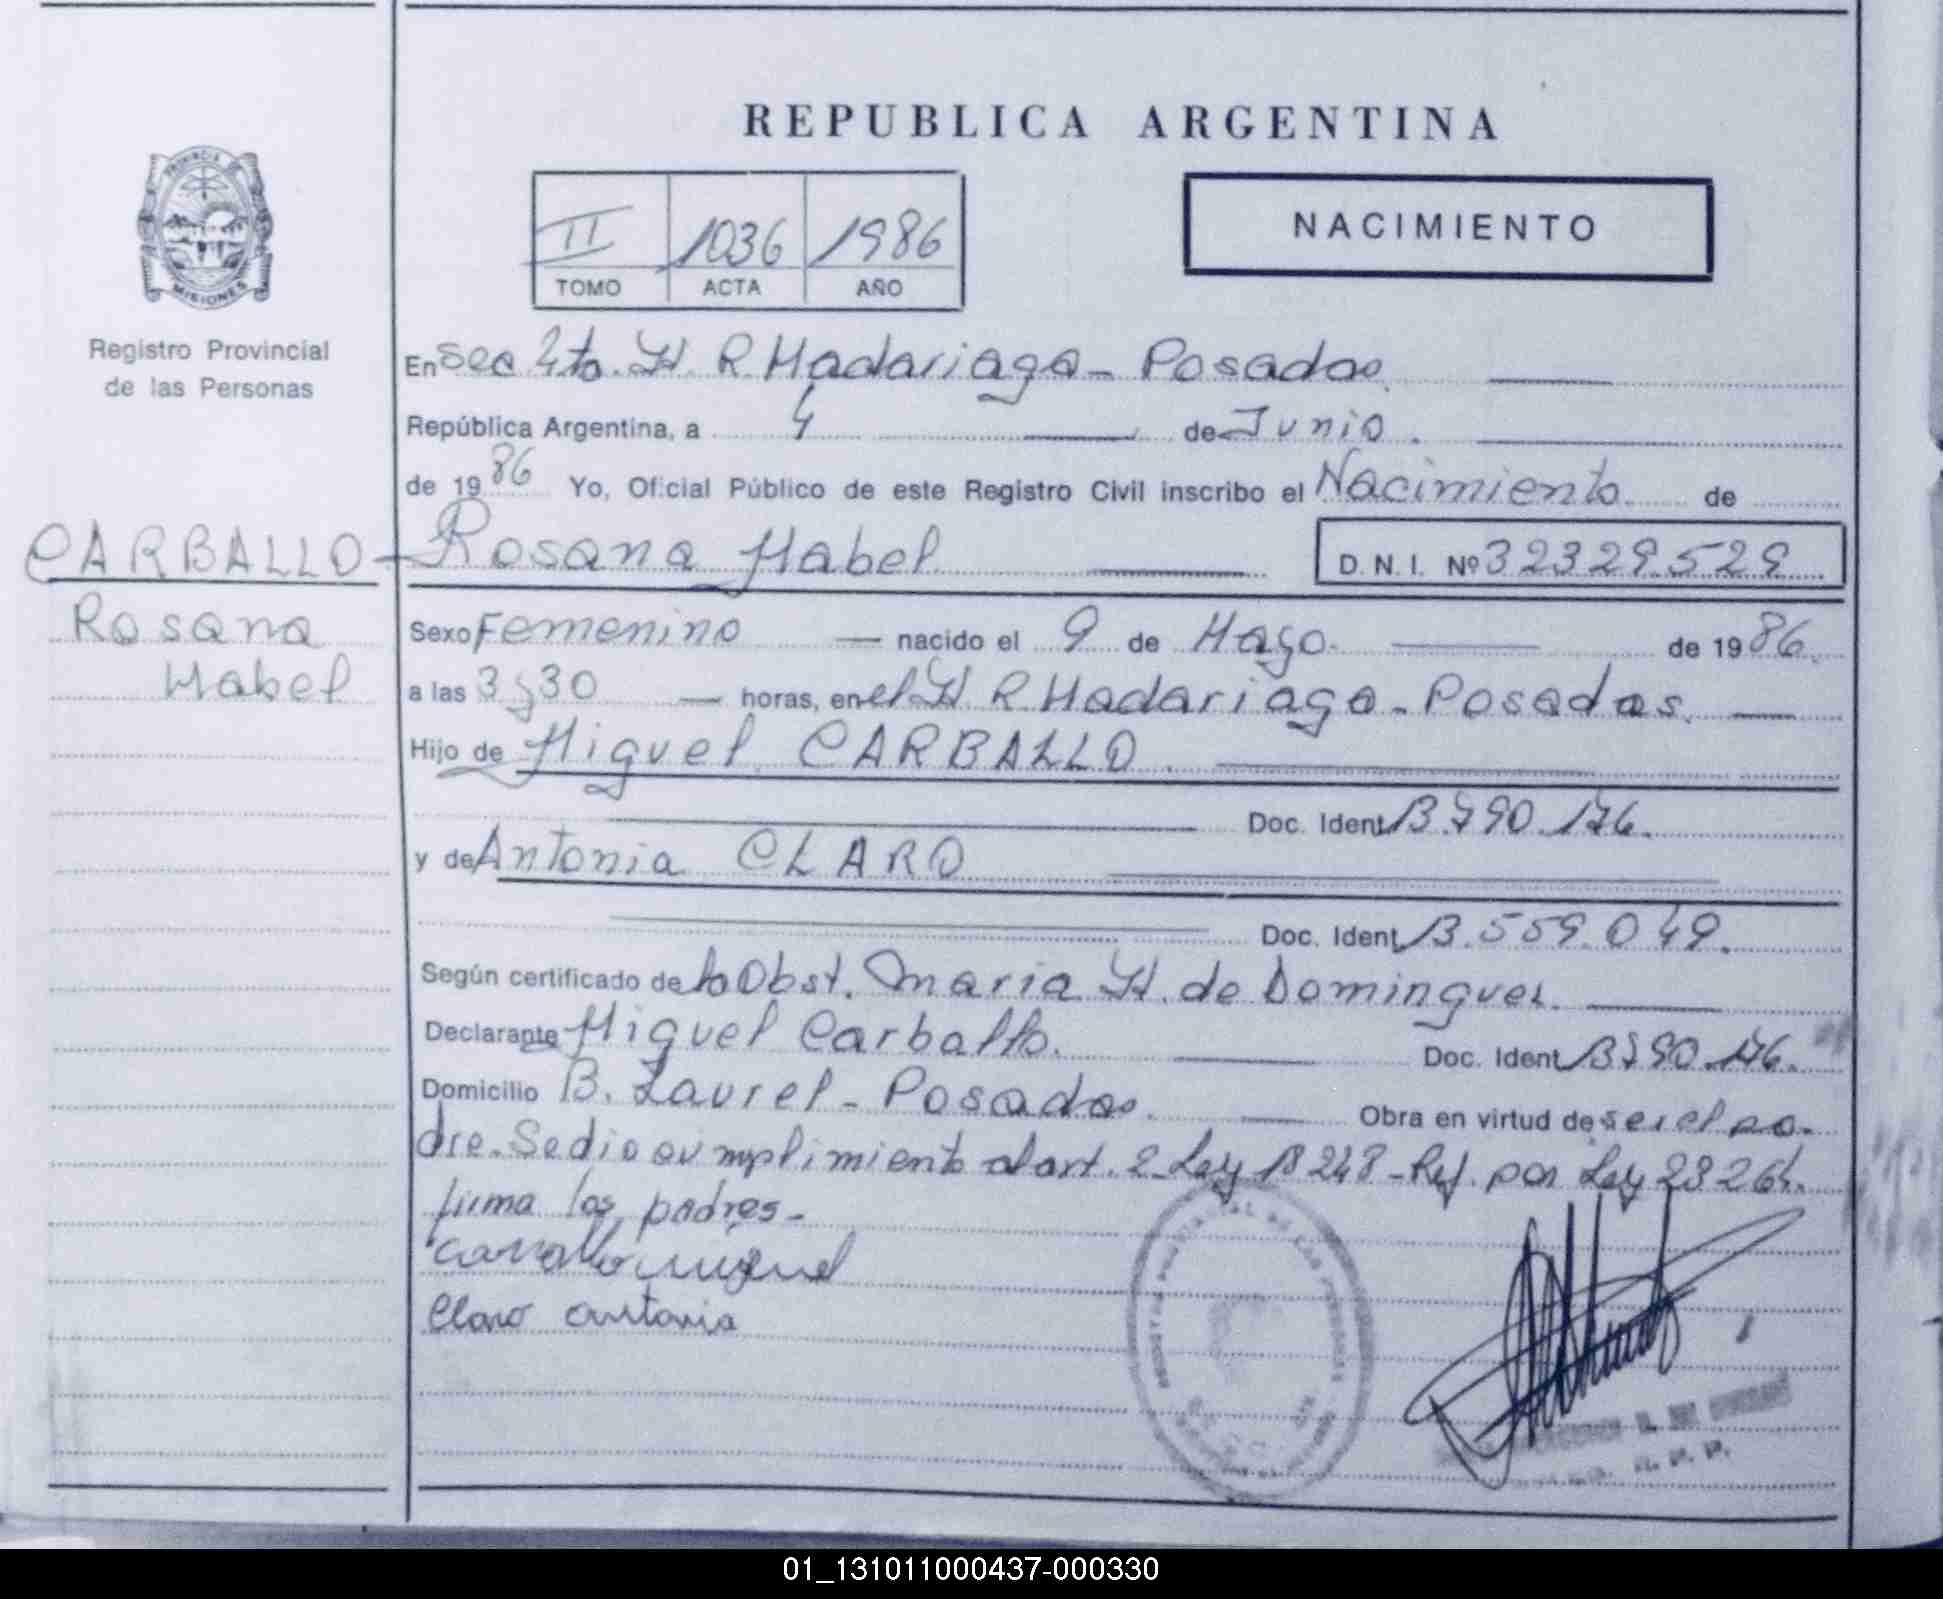 REPUBLICA ARGENTINA
PROVINCIA DE
MISIONES
Registro Provincial
de las Personas
II 1036 1986
TOMO ACTA AÑO
NACIMIENTO
En Sec 4ta. H. R. Madariaga - Posadas.
República Argentina, a 4 de Junio.
de 1986 Yo, Oficial Público de este Registro Civil inscribo el Nacimiento de
CARBALLO - Rosana Mabel
D. N. I. Nº 32329.529
Rosana
Mabel
Sexo Femenino nacido el 9 de Mayo. de 1986.
a las 3 y 30 horas, en el H. R. Madariaga - Posadas.
Hijo de Miguel CARBALLO
Doc. Ident 13.790.176.
y de Antonia CLARO
Doc. Ident 13.559.049.
Según certificado de la Obst. Maria H. de Dominguez.
Declarante Miguel Carballo. Doc. Ident 13790.176.
Domicilio B. Laurel - Posadas. Obra en virtud de ser el pa-
dre. Se dio cumplimiento al art. 2 - Ley 18248 - Ref. por Ley 23264.
firma los padres -
Carvallo miguel
Claro antonia
01_131011000437-000330